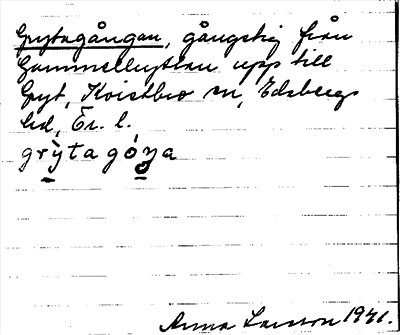 Grytagångan, gångstig från
Gammelhyttan upp till
Gryt, Kvistbro sn, Edsbergs
hd, Ör. l.
grytagóŋa
Anna Larsson 1941.